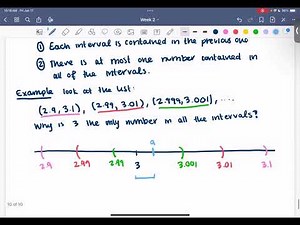 Week 2
① Each interval is contained in the previous one
② There is at most one number contained in
all of the intervals.
Example look at the list:
(2.9, 3.1), (2.99, 3.01), (2.999, 3.001), ....
Why is 3 the only number in all the intervals?
a
2.9 2.99 2.99 3 3.001 3.01 3.1